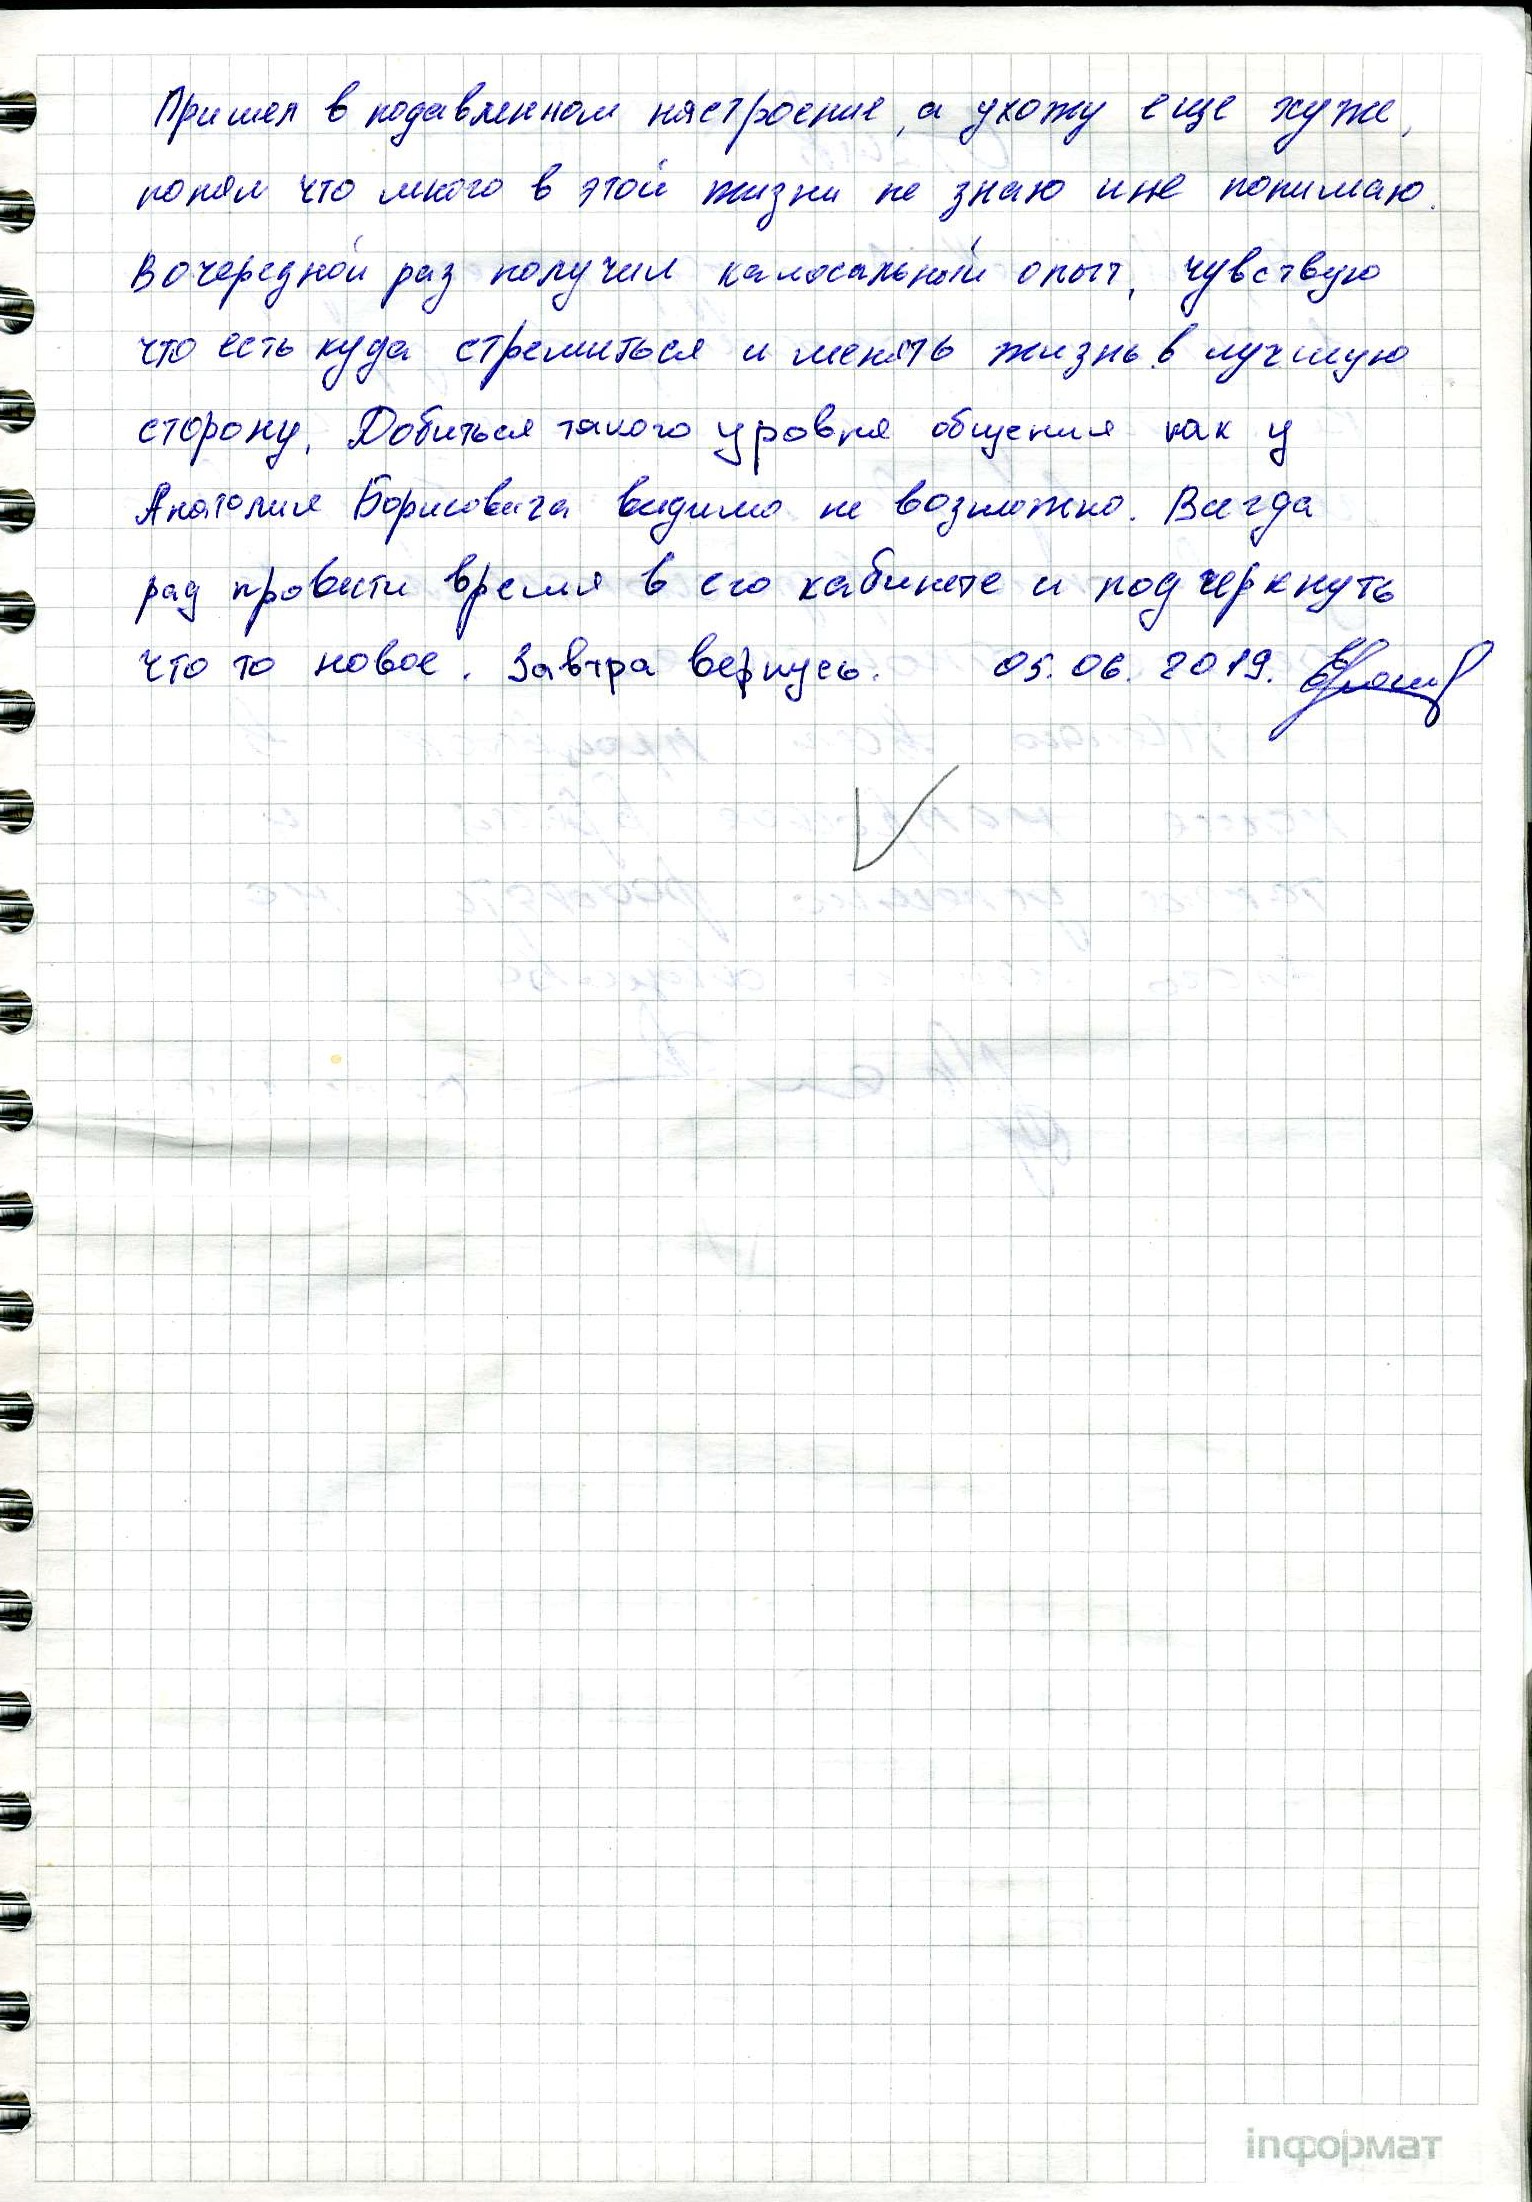 Пришел в подавленном настроение, а ухожу еще хуже,
понял что много в этой жизни не знаю и не понимаю.
В очередной раз получил калосальный опыт, чувствую
что есть куда стремиться и менять жизнь в лучшую
сторону. Добиться такого уровня общения как у
Анатолия Борисовича видимо не возможно. Всегда
рад провести время в его кабинете и подчеркнуть
что то новое. Завтра вернусь. 05.06.2019.
inформат